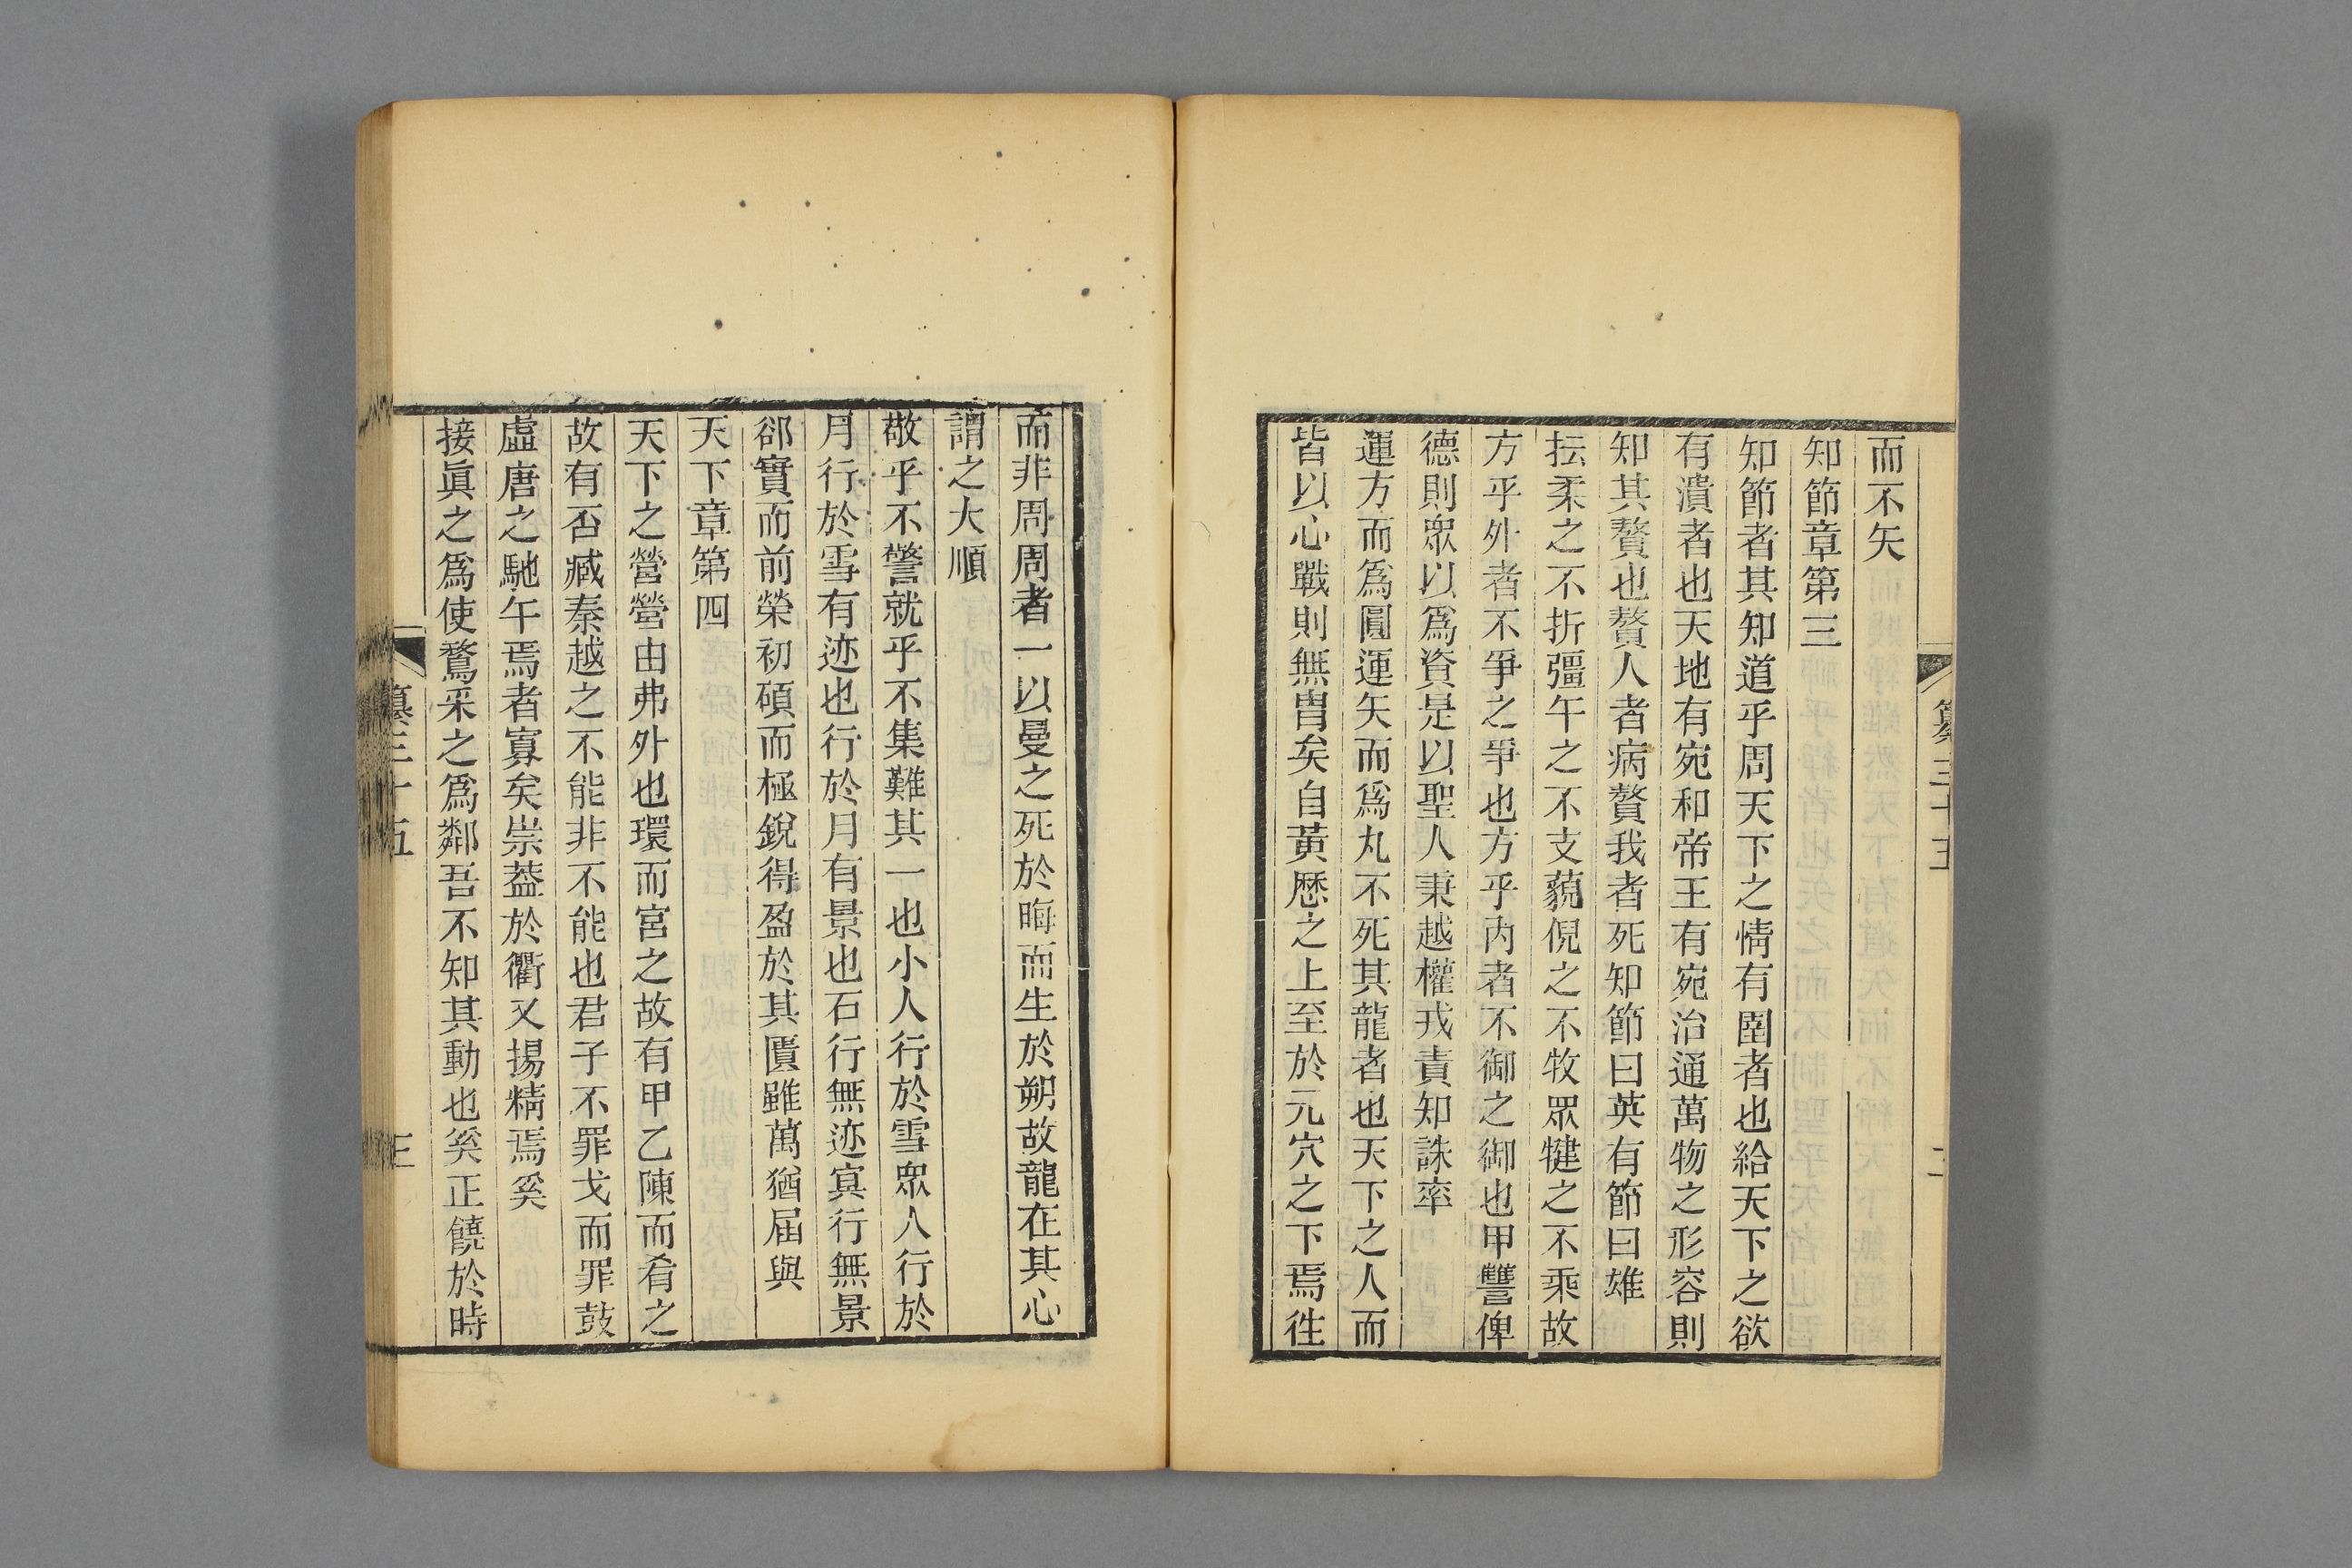 而不矢
知節章第三
知節者其知道乎周天下之情有圉者也給天下之欲
有潰者也天地有宛和帝王有宛治通萬物之形容則
知其贅也贅人者病贅我者死知節曰英有節曰雄
抎柔之不折彊午之不支藐倪之不牧眾犍之不乘故
方乎外者不爭之爭也方乎內者不御之御也甲讐俾
德則眾以爲資是以聖人秉越權戎責知誅率
運方而爲圓運矢而爲丸不死其龍者也天下之人而
皆以心戰則無胄矣自黃歷之上至於元穴之下焉往
而非周周者一以曼之死於晦而生於朔故龍在其心
謂之大順
敬乎不警就乎不集難其一也小人行於雪眾人行於
月行於雪有迹也行於月有景也石行無迹寘行無景
郤實而前榮初碩而極銳得盈於其匱雖萬猶屈與
天下章第四
天下之營營由弗外也環而宮之故有甲乙陳而肴之
故有否臧秦越之不能非不能也君子不罪戈而罪鼓
虛唐之馳午焉者寡矣崇葢於衢又揚精焉奚
接眞之爲使鶩采之爲鄰吾不知其動也奚正饒於時
三十五